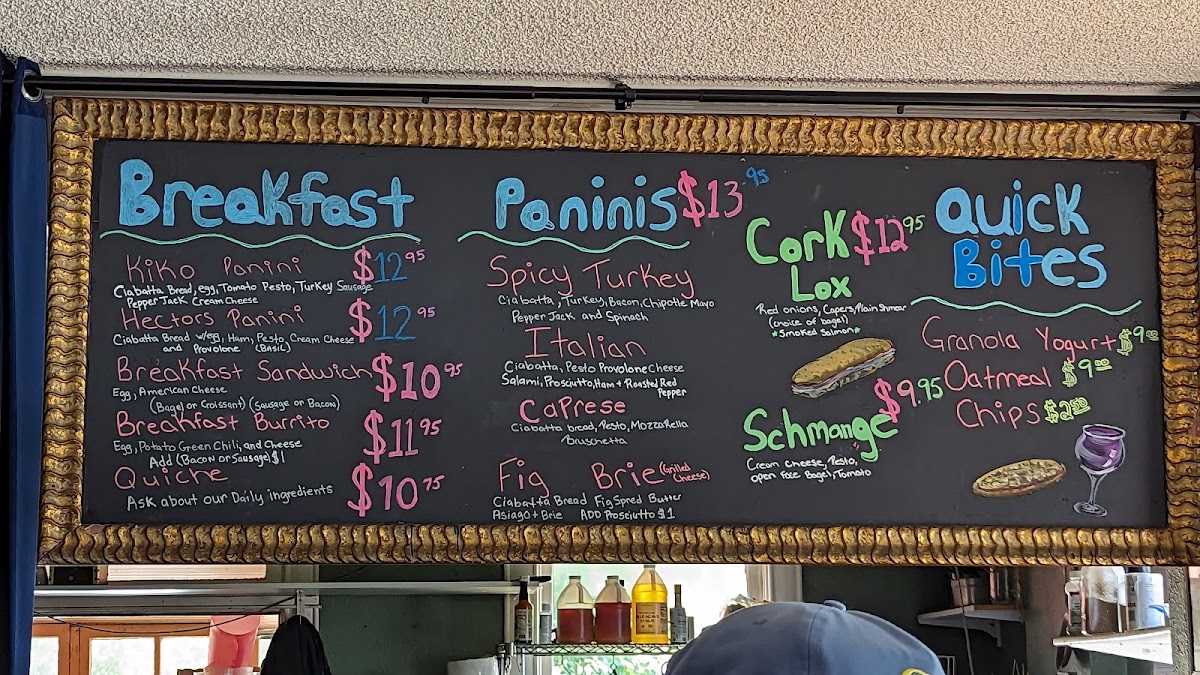 Breakfast
Kiko Panini $12.95
Ciabatta Bread, egg, Tomato Pesto, Turkey Sausage
Pepper Jack Cream Cheese
Hectors Panini $12.95
Ciabatta Bread w/egg, Ham, Pesto, Cream Cheese
and Provolone (BASIL)
Breakfast Sandwich $10.95
Egg, American Cheese
(Bagel or Croissant) (Sausage or Bacon)
Breakfast Burrito $11.95
Egg, Potato Green Chili, and Cheese
Add (Bacon or Sausage) $1
Quiche $10.75
Ask about our Daily ingredients
Paninis $13.95
Spicy Turkey
Ciabatta, Turkey, Bacon, Chipotle Mayo
Pepper Jack and Spinach
Italian
Ciabatta, Pesto Provolone Cheese
Salami, Prosciutto, Ham + Roasted Red
Pepper
Caprese
Ciabatta bread, Pesto, Mozzarella
Bruschetta
Fig Brie (Grilled Cheese)
Ciabatta Bread Fig Spred Butter
Asiago + Brie ADD Prosciutto $1
Cork $12.95
Lox
Red onions, Capers, Plain Shmear
(choice of bagel)
*Smoked Salmon*
$9.95
Schmange
Cream cheese, Pesto,
open face Bagel, Tomato
Quick
Bites
Granola Yogurt $9.00
Oatmeal $9.00
Chips $2.50